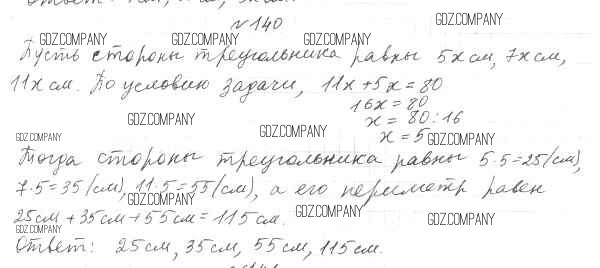 №140
GDZ.COMPANY
GDZ.COMPANY GDZ.COMPANY GDZ.COMPANY
Пусть стороны треугольника равны 5x см, 7x см,
11x см. По условию задачи, 11x + 5x = 80
16x = 80
GDZ.COMPANY
x = 80 : 16
GDZ.COMPANY GDZ.COMPANY
x = 5
GDZ.COMPANY
Тогда стороны треугольника равны 5·5=25(см),
7·5=35(см), 11·5=55(см), а его периметр равен
GDZ.COMPANY
25см + 35см + 55см = 115см.
GDZ.COMPANY GDZ.COMPANY
GDZ.COMPANY
Ответ: 25см, 35см, 55см, 115см.